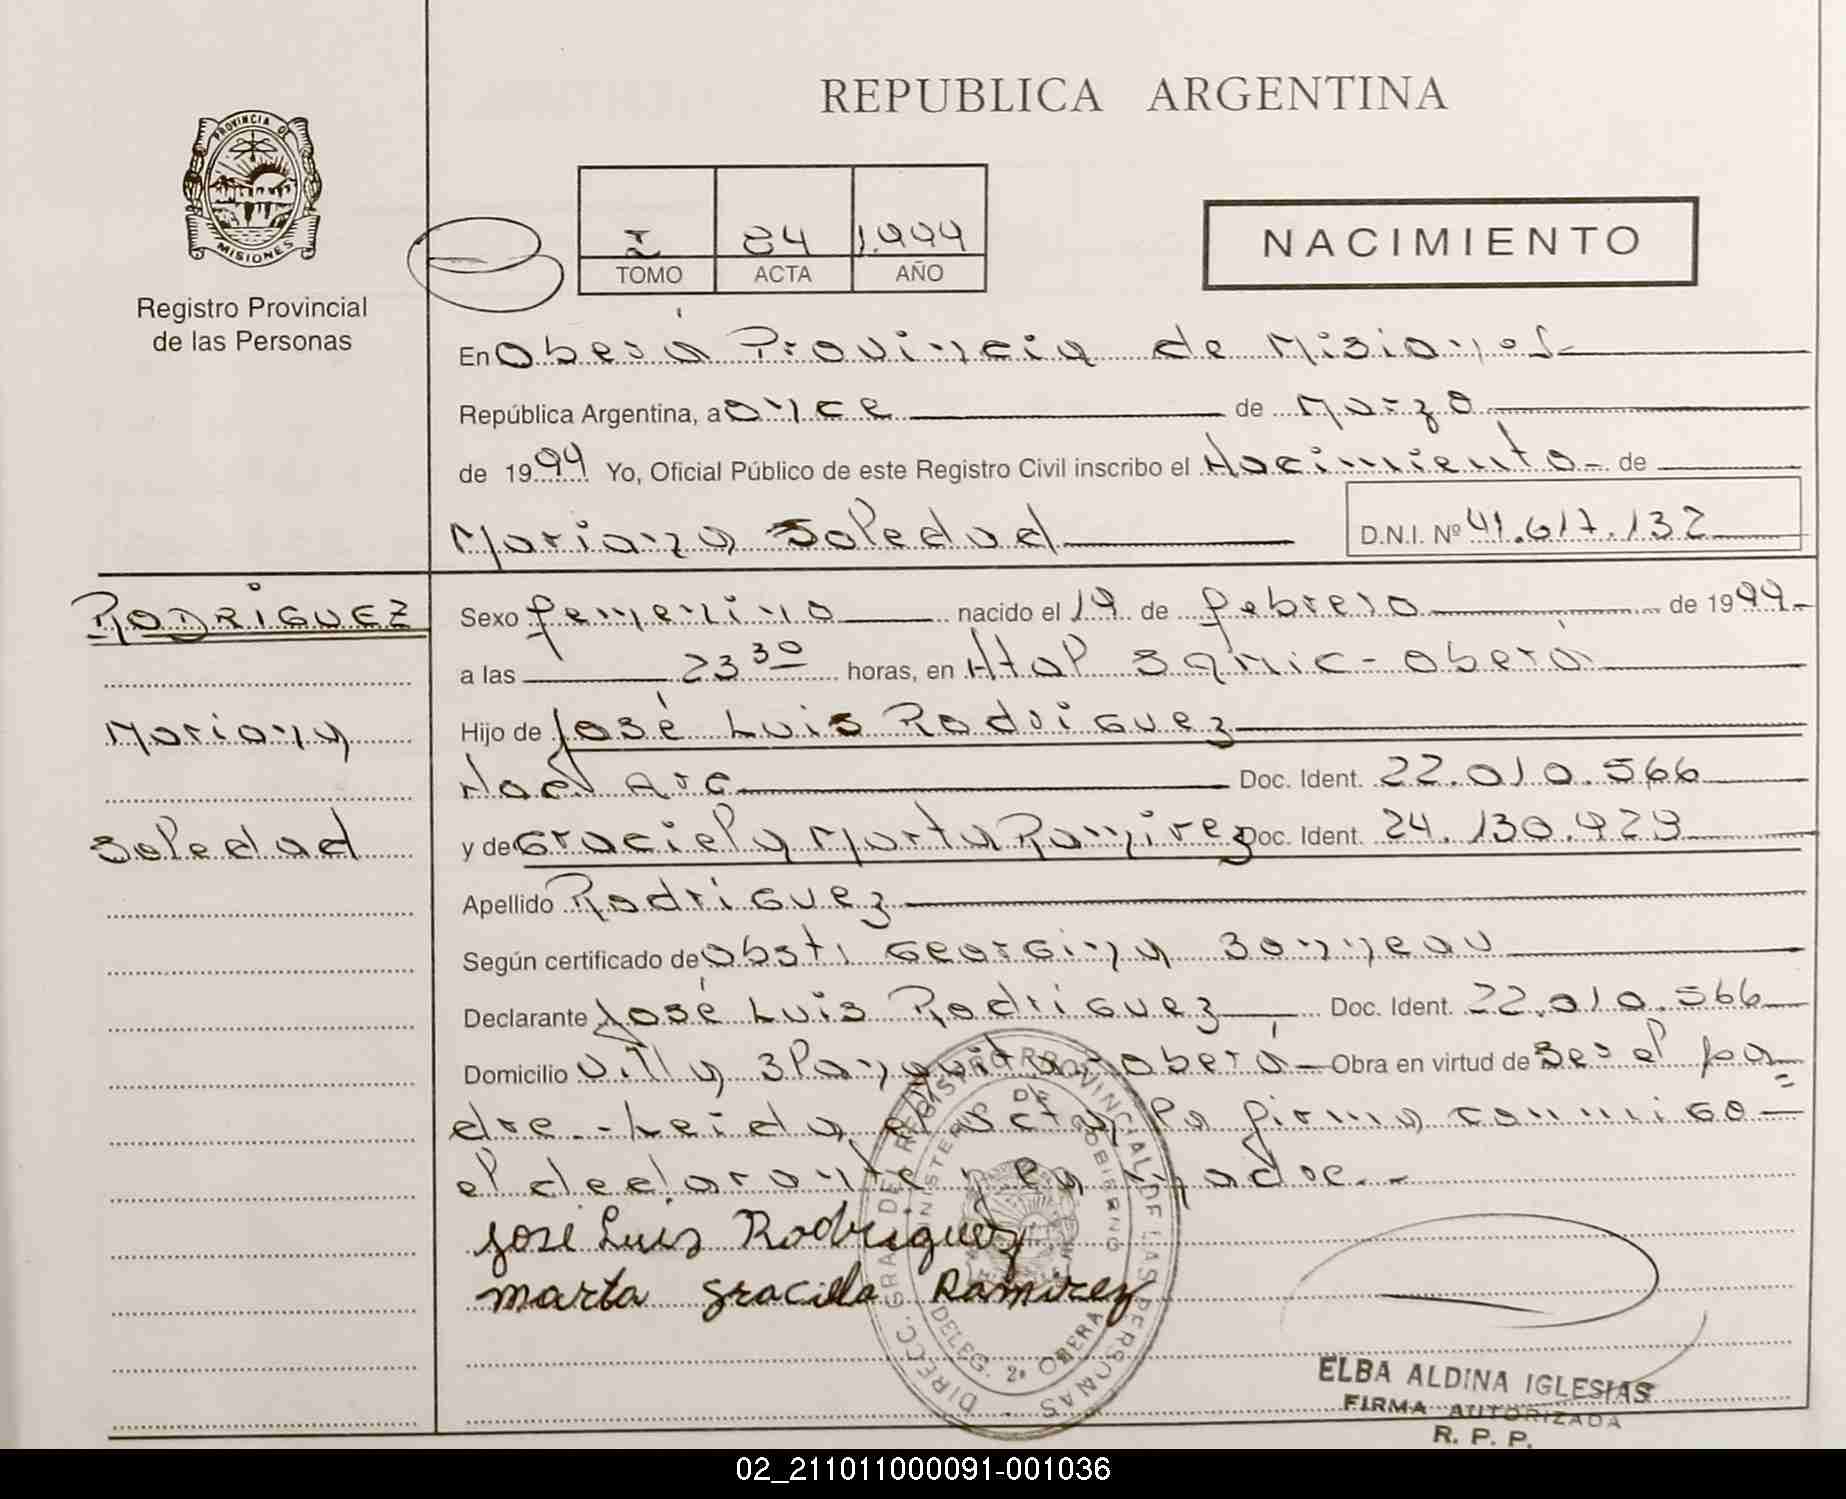 REPUBLICA ARGENTINA
PROVINCIA DE
MISIONES
Registro Provincial
de las Personas
I 84 1.999
TOMO ACTA AÑO
NACIMIENTO
En Oberá Provincia de Misiones
República Argentina, a once de Marzo
de 1999 Yo, Oficial Público de este Registro Civil inscribo el Nacimiento de
Mariana Soledad D.N.I. Nº 41.617.132
RODRIGUEZ
Mariana
Soledad
Sexo femenino nacido el 19 de febrero de 1999
a las 23 30 horas, en Htal Samic - Oberá
Hijo de José Luis Rodriguez
Nac. Arg Doc. Ident. 22.010.566
y de Graciela Marta Ramirez Doc. Ident. 24.130.929
Apellido Rodriguez
Según certificado de Obst. Georgina Bonneau
Declarante José Luis Rodriguez Doc. Ident. 22.010.566
Domicilio Villa Blanquita - Oberá Obra en virtud de ser el pa=
dre.- Leida el acta, la firma conmigo
el declarante y la madre.-
José Luis Rodriguez
marta gracilla Ramirez
DIRECC. GRAL DEL REGISTRO PROVINCIAL DE LAS PERSONAS
MINISTERIO DE GOBIERNO
DELEG. 2ª OBERA
ELBA ALDINA IGLESIAS
FIRMA AUTORIZADA
R. P. P.
02_211011000091-001036